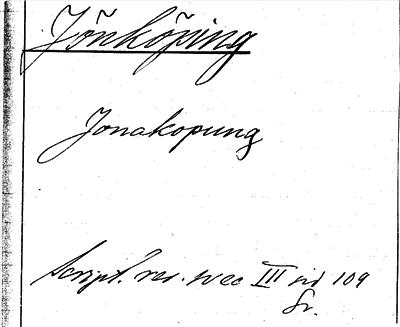 Jönköping
Jonakopung
Script. rer. svec III sid 109
Gr.